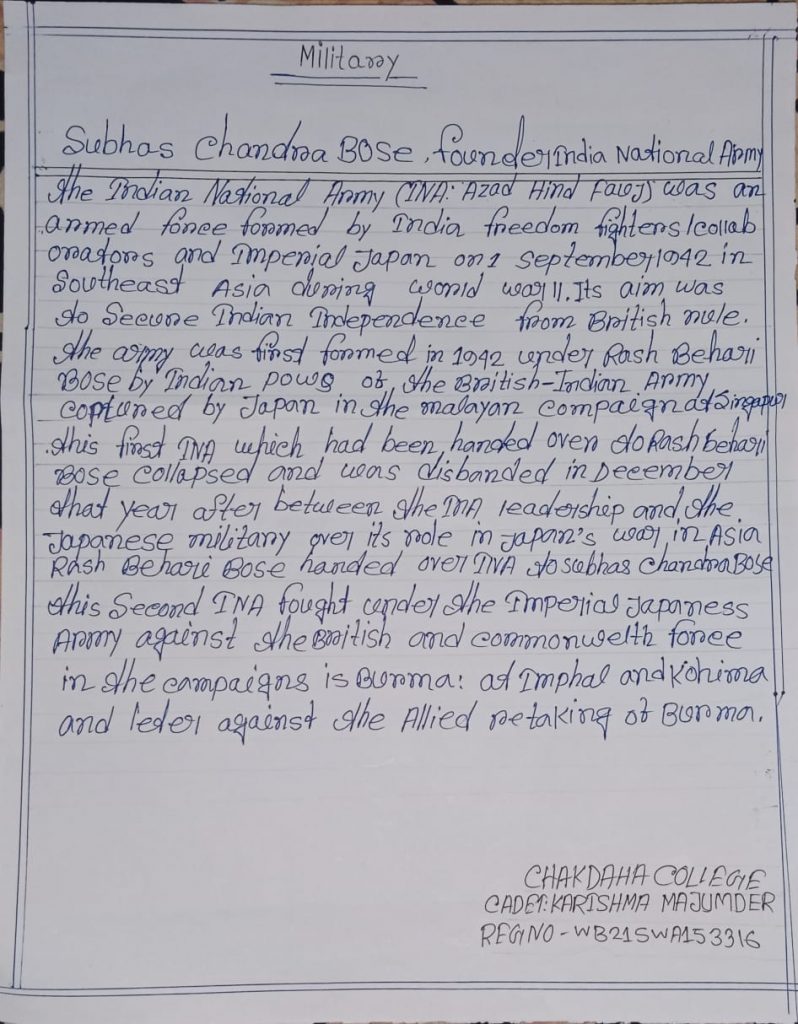 Military
Subhas Chandra Bose, founder India National Army
The Indian National Army (INA: Azad Hind Fawj) was an
armed force formed by India freedom fighters/collab
orators and Imperial Japan on 1 September 1942 in
Southeast Asia during world war II. Its aim was
to Secure Indian Independence from British rule.
The army was first formed in 1942 under Rash Behari
Bose by Indian pows of, the British-Indian Army
captured by Japan in the malayan compaign at Singapur
this first INA which had been handed over to Rash behari
Bose collapsed and was disbanded in December
that year after between the INA leadership and the
Japanese military over its role in Japan's war in Asia
Rash Behari Bose handed over INA to subhas Chandra Bose
this Second INA fought under the Imperial Japaness
Army against the British and commonwelth force
in the campaigns is Burma: at Imphal and Kohima
and leter against the Allied retaking of Burma.
CHAKDAHA COLLEGE
CADET: KARISHMA MAJUMDER
REG NO - WB21SWA153316